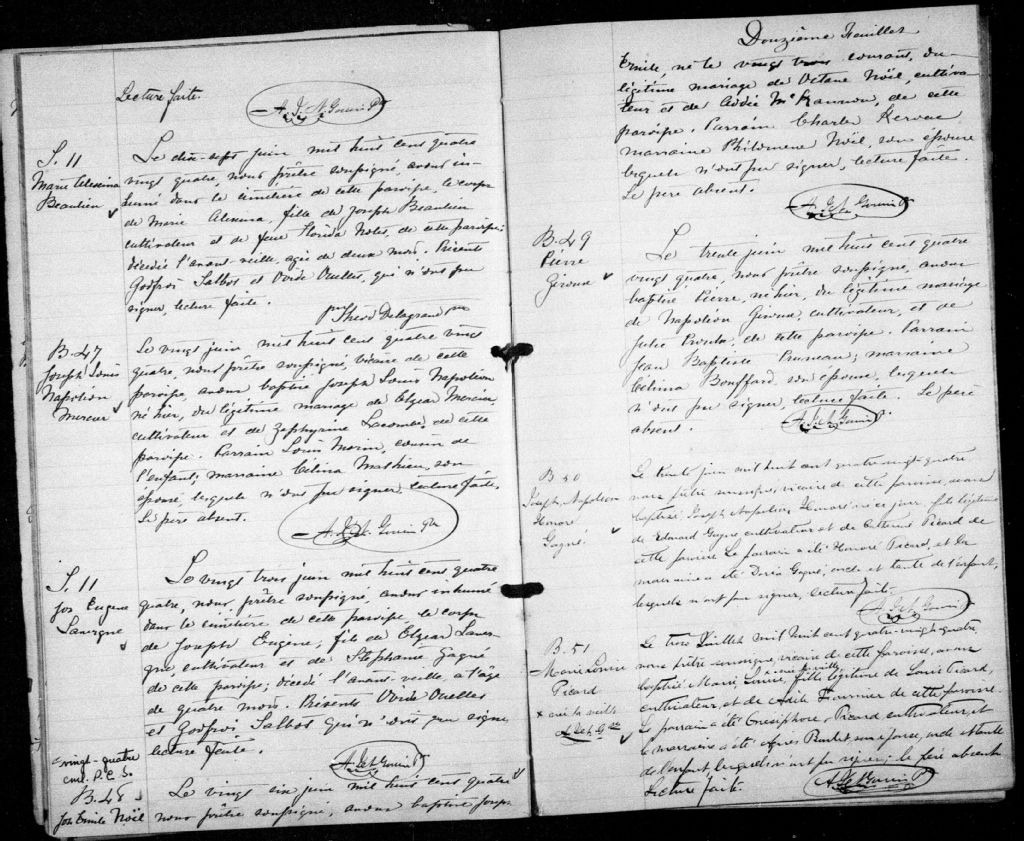 Lecture faite.
S. 11
Marie Alexina
Beaulieu
Le dix-sept juin mil huit cent quatre
vingt quatre, nous prêtre soussigné, avons in-
humé dans le cimetière de cette paroisse, le corps
de Marie Alexina, fille de Joseph Beaulieu
cultivateur et de feue Florida de cette paroisse,
décédée l'avant veille, agée de deux mois. Présents
Godfroi Talbot et Ovide Ouellet, qui n'ont pu
signer, lecture faite.
Delagrave ptre
B. 47
Joseph Louis
Napoléon
Mercier
Le vingt juin mil huit cent quatre vingt
quatre, nous prêtre soussigné, vicaire de cette
paroisse, avons baptisé Joseph Louis Napoléon
né hier, du légitime mariage de Elzear Mercier,
cultivateur et de Zéphyrine Lacombe, de cette
paroisse. Parrain Louis Morin, cousin de
l'enfant, marraine Célina Mathieu, son
épouse, lesquels n'ont pu signer, lecture faite.
Le père absent.
S. 11
Jos Eugene
Lavergne
Le vingt trois juin mil huit cent quatre
quatre, nous prêtre soussigné, avons inhumé
dans le cimetière de cette paroisse, le corps
de Joseph Eugène, fils de Elzear Laver-
gne, cultivateur et de Stéphanie Gagné
de cette paroisse, décédé l'avant-veille, à l'âge
de quatre mois. Présents Ovide Ouellet
et Godfroi Talbot qui n'ont pu signer
lecture faite.
vingt-quatre
B. 48
Jos Emile Noël
Le vingt six juin mil huit cent quatre
nous prêtre soussigné, avons baptisé Joseph
Douzième Feuillet
Emile, né le vingt trois courant, du
légitime mariage de Octave Noël, cultiva-
teur et de de cette
paroisse. Parrain Charles
marraine Philomene Noël, son épouse
lesquels n'ont pu signer, lecture faite.
Le père absent.
B. 49
Pierre
Giroux
Le trente juin mil huit cent quatre
vingt quatre, nous prêtre soussigné, avons
baptisé Pierre, né hier, du légitime mariage
de Napoléon Giroux, cultivateur, et de
Julie Proulx, de cette paroisse. Parrain
Jean Baptiste Pruneau; marraine
Célina Bouffard son épouse, lesquels
n'ont pu signer, lecture faite. Le père
absent.
B 50
Joseph Napoléon
Honoré
Gagné
Le trente juin mil huit cent quatre-vingt-quatre
nous prêtre soussigné, vicaire de cette paroisse, avons
baptisé Joseph Napoléon Honoré né ce jour, fils légitime
de Edouard Gagné cultivateur et de Picard de
cette paroisse Le parrain a été Honoré Picard, et la
marraine a été Gagné, oncle et tante de l'enfant,
lesquels n'ont pu signer, lecture faite.
B. 51
Marie Louise
Picard
née la veille
Le trois Juillet mil huit cent quatre-vingt-quatre,
nous prêtre soussigné, vicaire de cette paroisse, avons
baptisé Marie Louise, fille légitime de Louis Picard,
cultivateur, et de Adèle Fournier de cette paroisse
Le parrain a été Onésiphore Picard cultivateur, et
la marraine a été son épouse, oncle et tante
de l'enfant, lesquels n'ont pu signer; le père absent
Lecture faite.